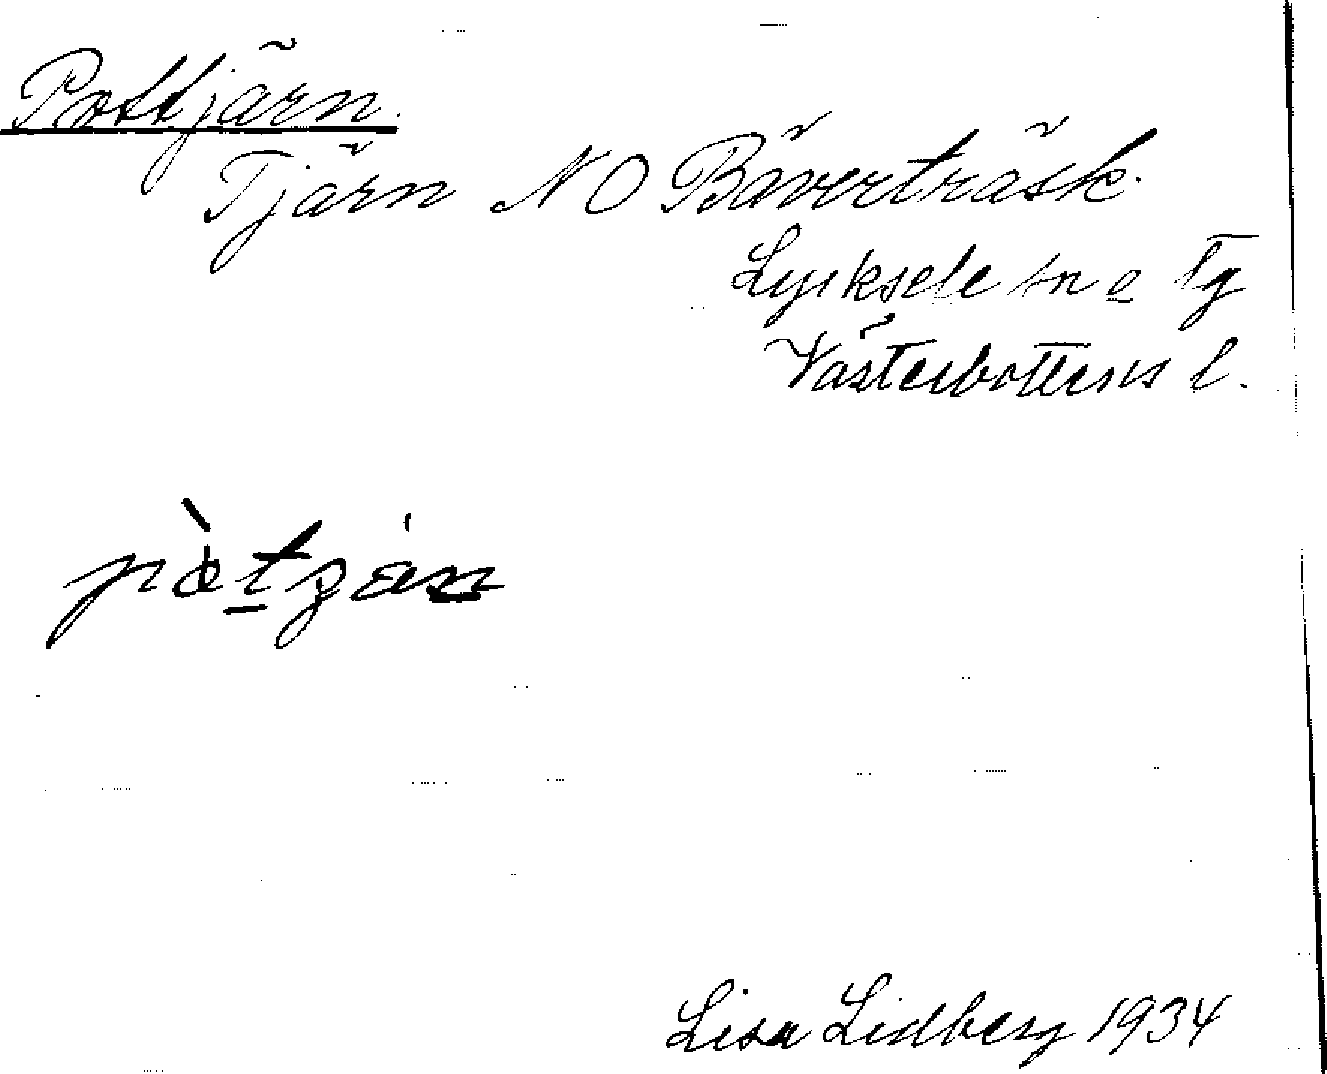 Pottjärn.
Tjärn NO Bäverträsk.
Lycksele sn o lg
Västerbottens l.
Lisa Lidberg 1934